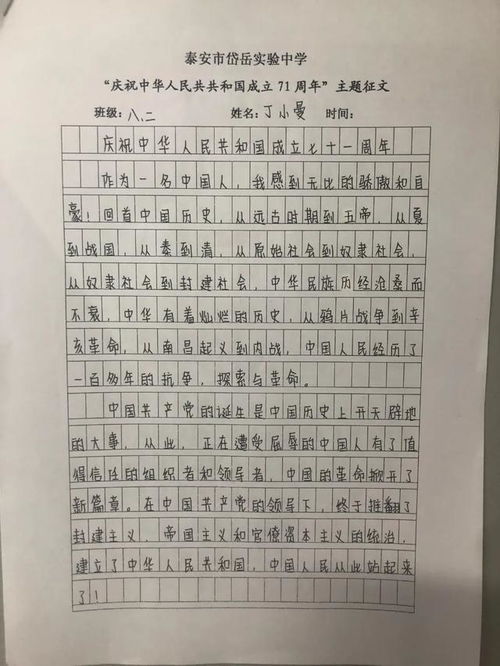 泰安市岱岳实验中学
“庆祝中华人民共共和国成立 71 周年”主题征文
班级：八、二 姓名：丁小曼 时间：
庆祝中华人民共和国成立七十一周年
作为一名中国人，我感到无比的骄傲和自
豪！回首中国历史，从远古时期到五帝，从夏
到战国，从秦到清，从原始社会到奴隶社会，
从奴隶社会到封建社会，中华民族历经沧桑而
不衰，中华有着灿烂的历史，从鸦片战争到辛
亥革命，从南昌起义到内战，中国人民经历了
一百多年的抗争，探索与革命。
中国共产党的诞生是中国历史上开天辟地
的大事，从此，正在遭受屈辱的中国人有了值
得信任的组织者和领导者，中国的革命掀开了
新篇章。在中国共产党的领导下，终于推翻了
封建主义、帝国主义和官僚资本主义的统治，
建立了中华人民共和国，中国人民从此站起来
了！